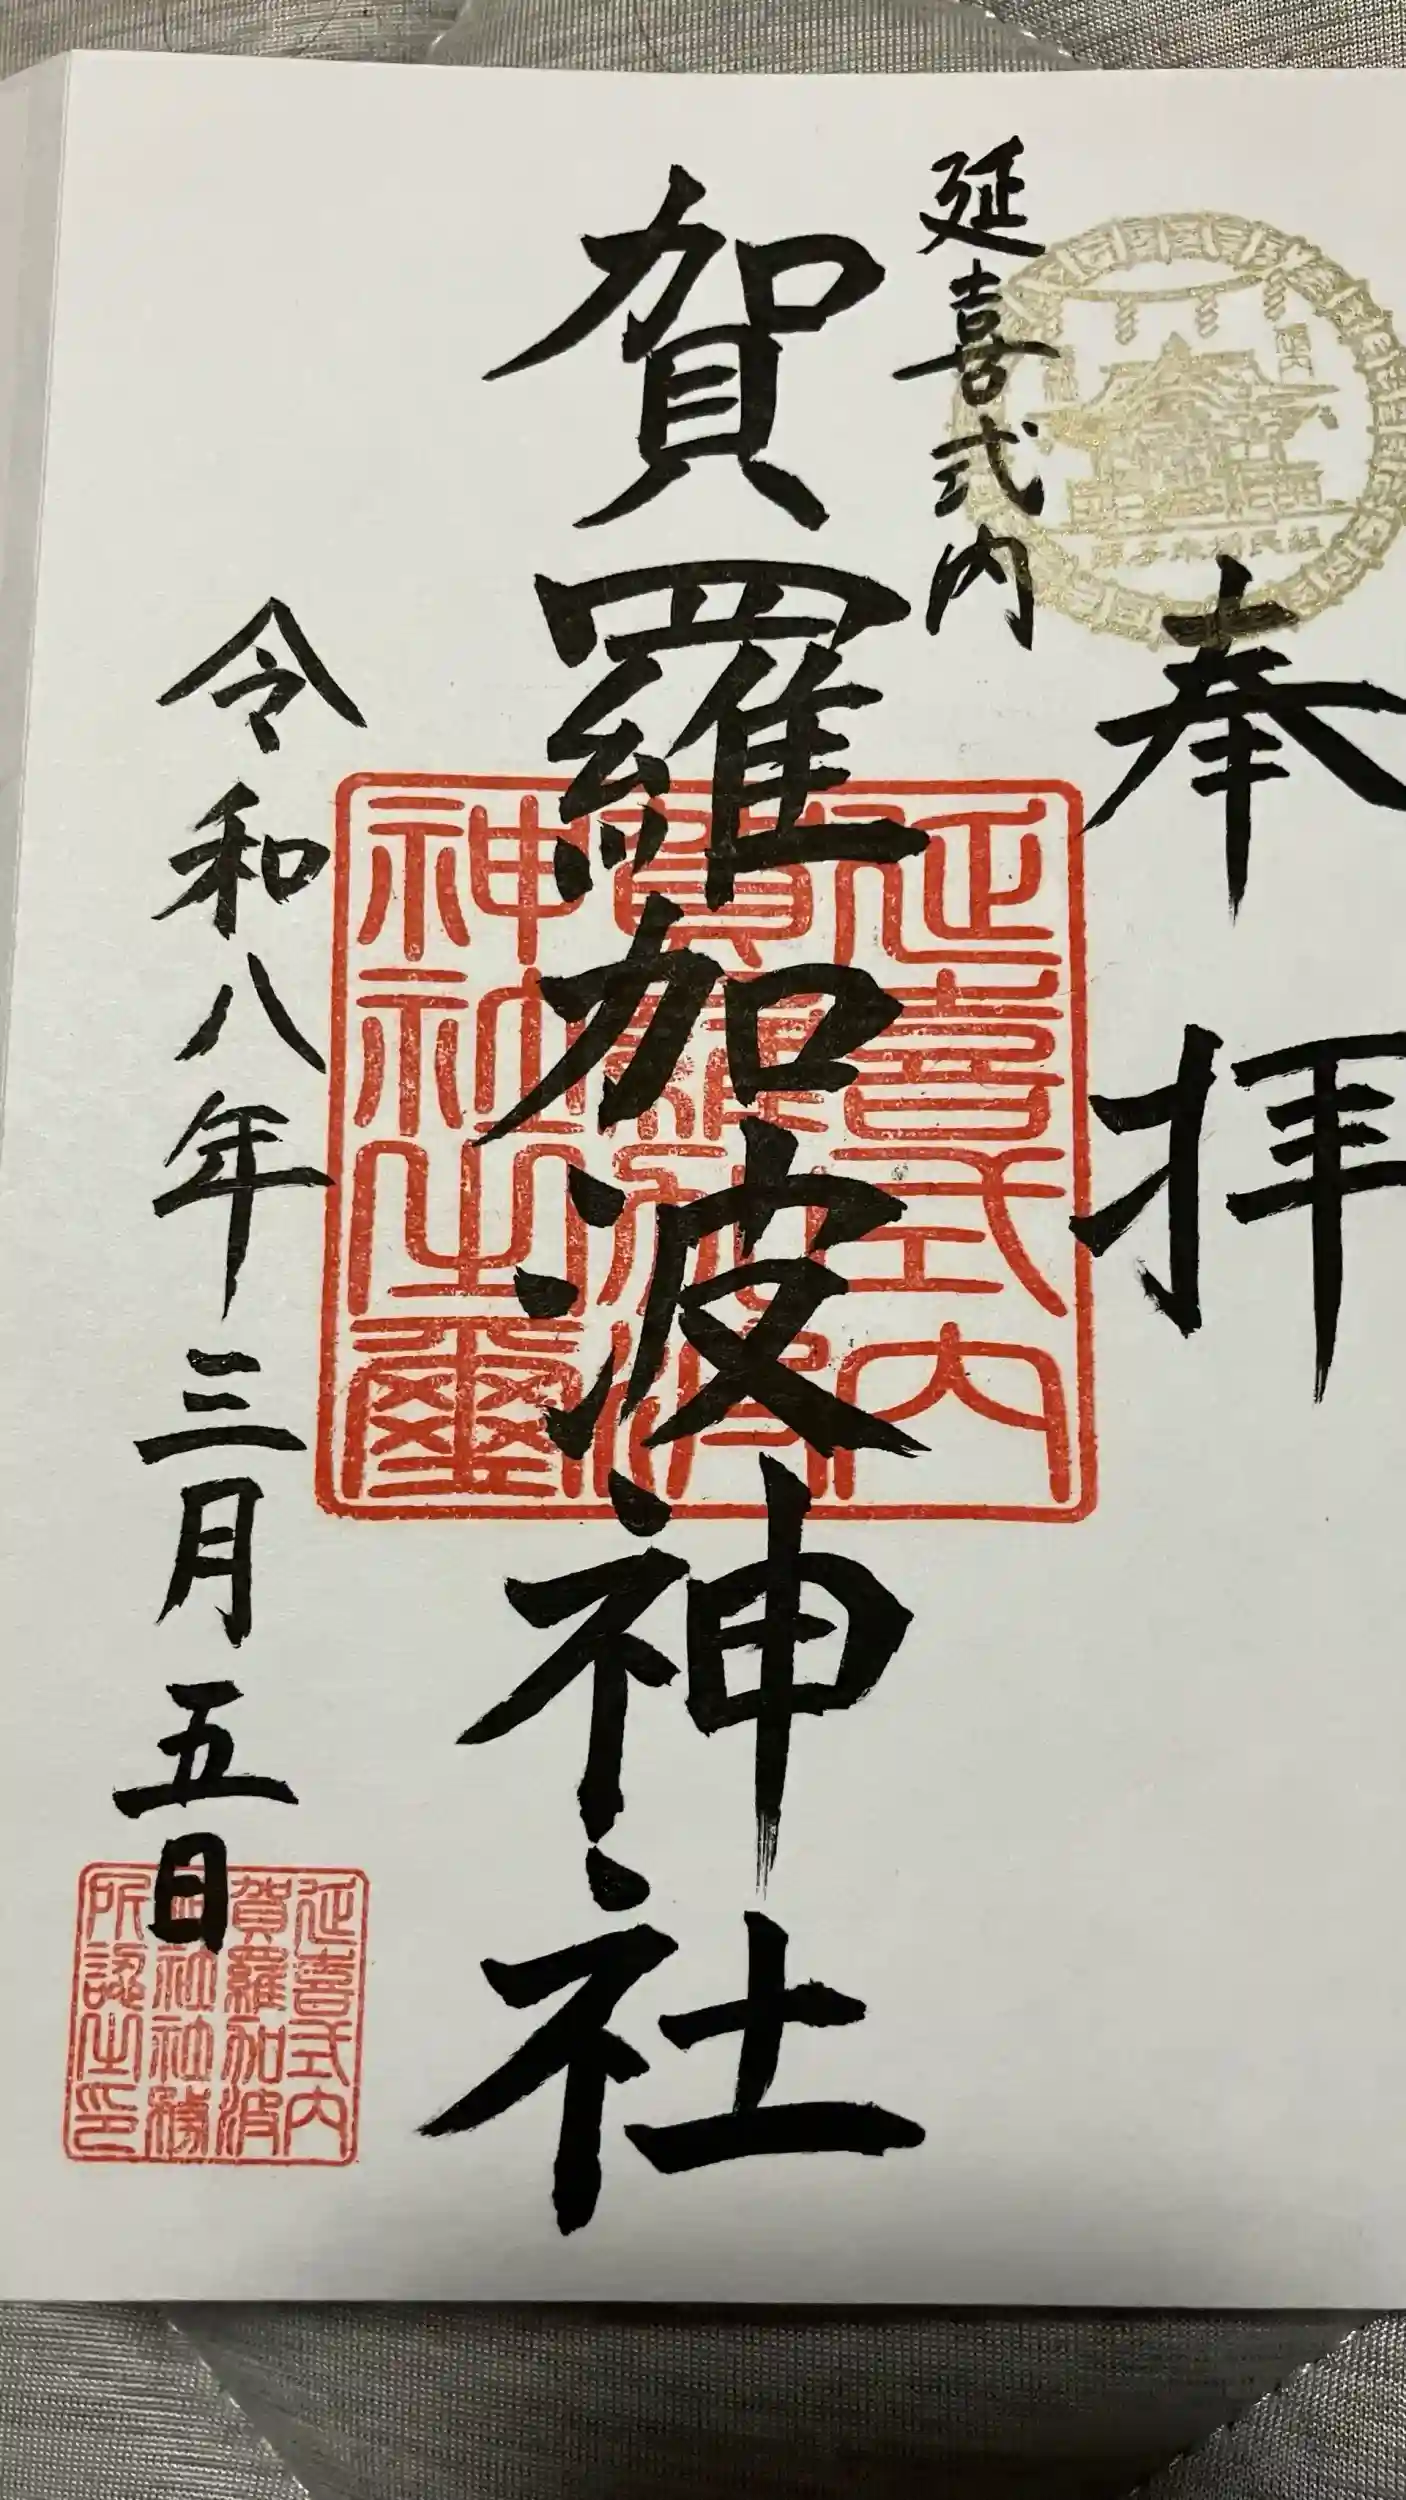 奉拝
延喜式内
賀羅加波神社
令和八年三月五日
延喜式内
賀羅加波
神社之璽
延喜式内
賀羅加波
神社社務
所認之印